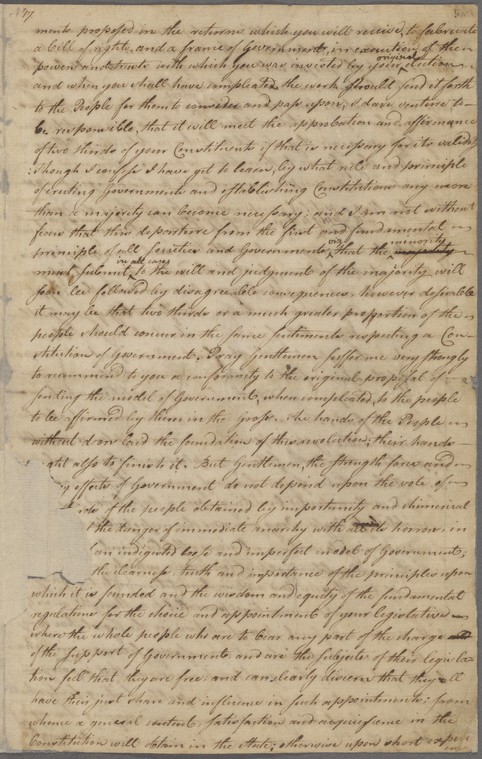 ments proposed in the return which you will receive, to fabricate
a bill of rights, and a frame of Government, in execution of the
power and trust with which you was invested by your original election
and when you shall have compleated the work should send it forth
to the People for them to consider and pass upon, I dare venture to
be responsible, that it will meet the approbation and affirmance
of two thirds of your Constituents if that is necessary for its validity
; though I confess I have yet to learn, by what rule and principle
of erecting Governments and establishing Constitutions any more
than a majority can become necessary; and I am not without
fears that this departure from the first and fundamental
principle of all Societies and Governments viz that the minority
must submit in all cases to the will and judgment of the majority will
soon be followed by disagreeable consequences, however desirable
it may be that two thirds or a much greater proportion of the
people should concur in the same sentiments respecting a Con
stitution of Government. Pray Gentlemen suffer me very strongly
to recommend to you a conformity to the original proposal of
sending the model of Government, when compleated, to the people
to be affirmed by them in the Gross. The hands of the People
without door laid the foundation of this revolution, their hands
ght also to finish it. But Gentlemen, the strength force and
y effects of Government do not depend upon the vote of
rds of the people obtained by importunity and chimerical
the danger of immediate anarchy with its horrors, in
an indigested loose and imperfect model of Government;
the clearness truth and importance of the principles upon
which it is founded and the wisdom and equity of the fundamental
regulations for the choice and appointment of your legislative
where the whole people who are to bear any part of the charge
of the support of Government and are the subjects of their legisla
tion feel that they are free and can clearly discern that they all
have their just share and influence in such appointments; from
whence a general content, satisfaction and acquiescence in the
Constitution will obtain in the State; otherwise upon short expe